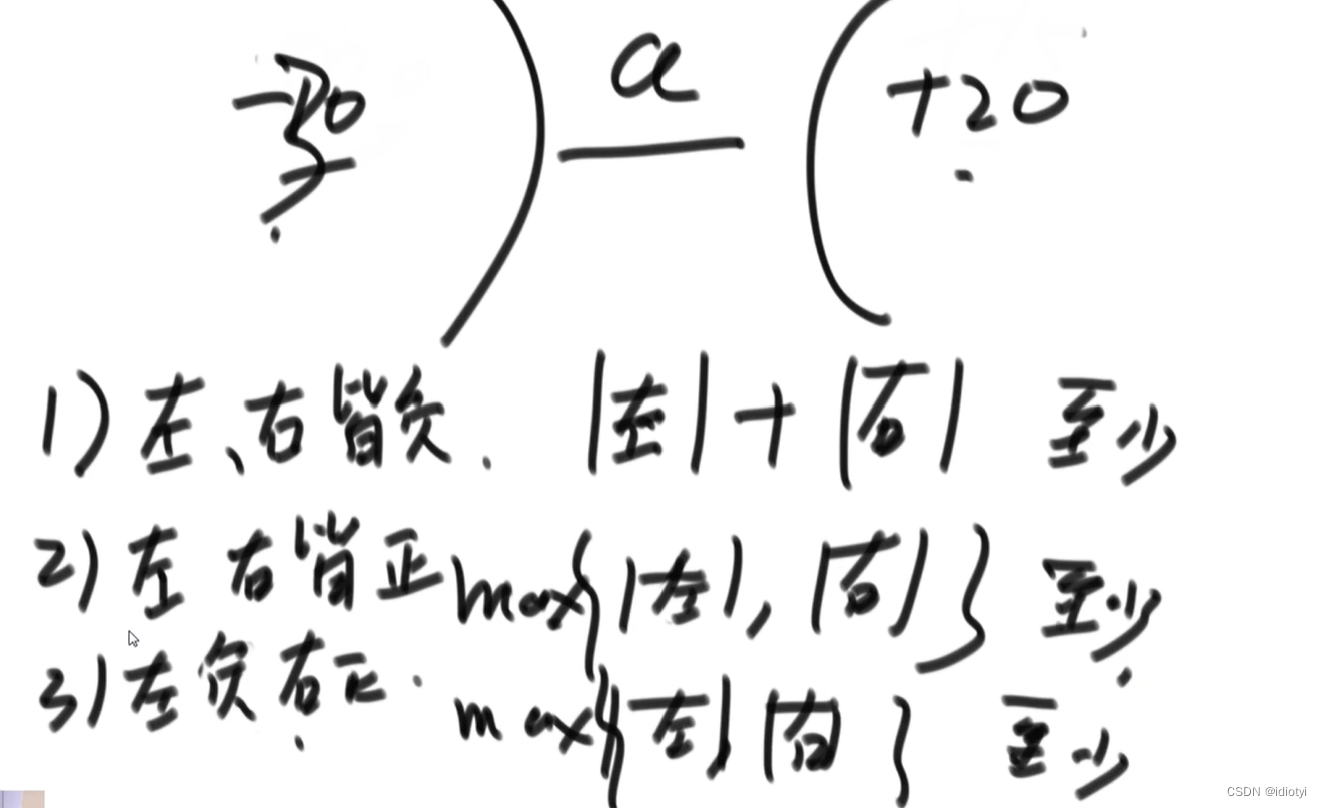 a
+20
1) 左、右皆负. |左| + |右| 至少
2) 左 右皆正 max{|左|, |右|} 至少
3) 左负右正. max{|左| |右|} 至少
CSDN @idiotyi